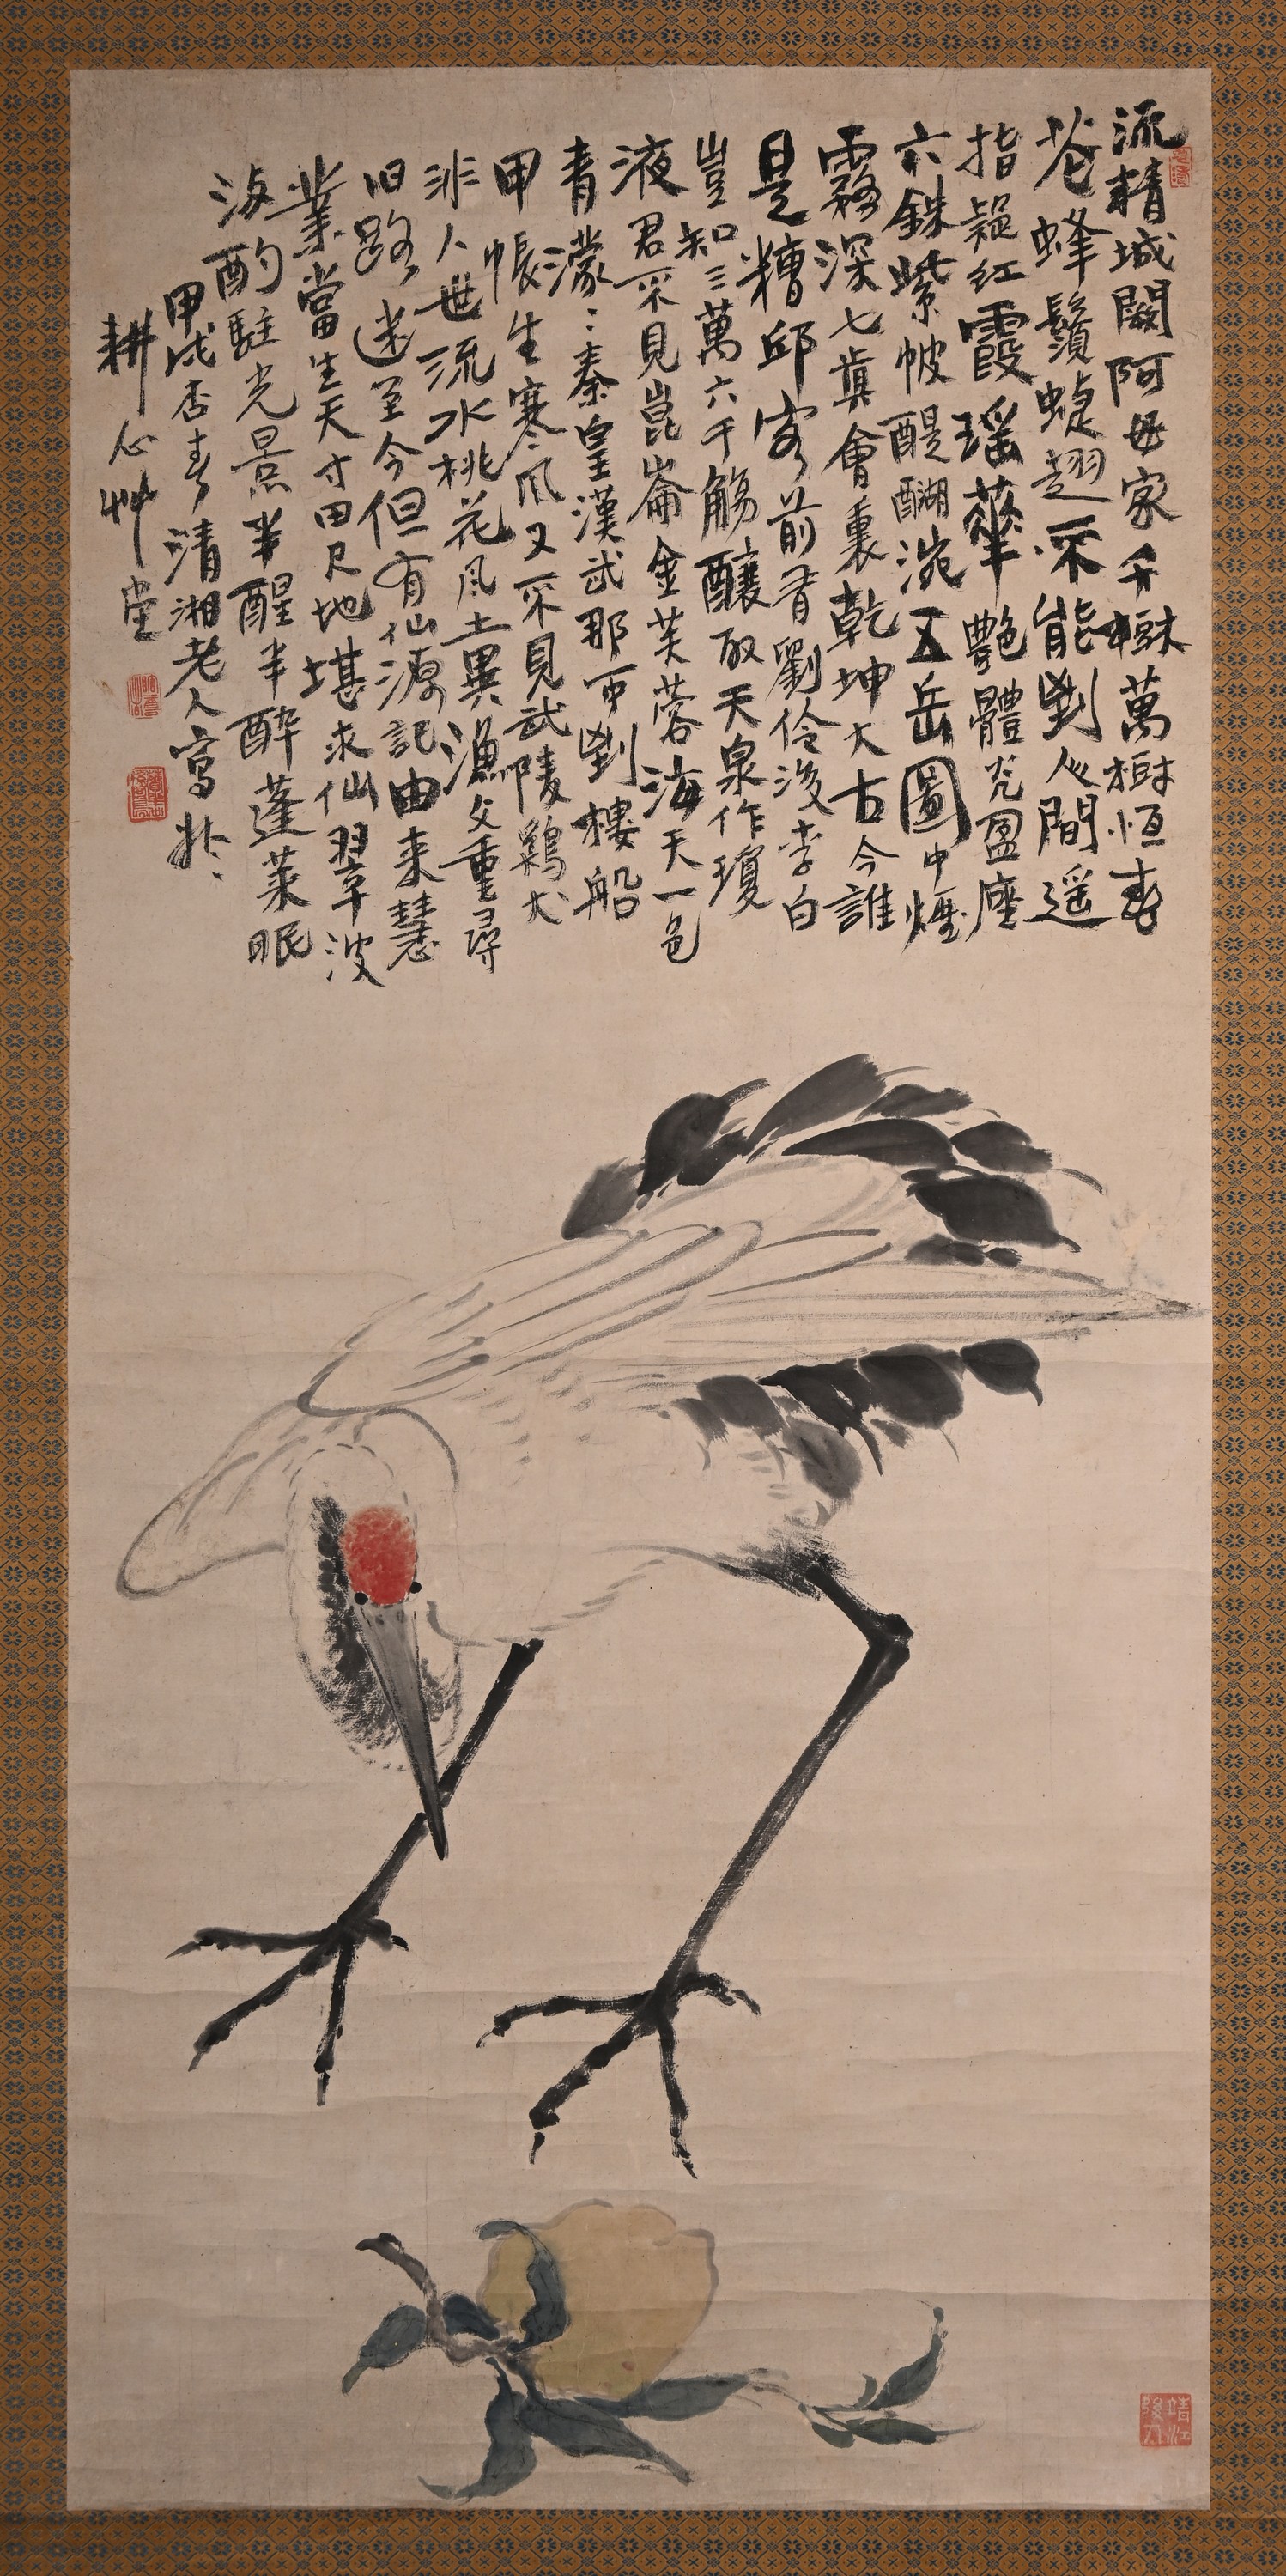 流精城闕阿母家千樹萬樹恒春
花蜂鬚蜨翅不能到人間遥
指疑紅霞瑤華艷體光盈座
六銖紫帔醍醐涴五岳圖中煙
霧深七真會裏乾坤大古今誰
是糟邱客前有劉伶後李白
豈知三萬六千觴釀取天泉作瓊
液君不見崑崙金芙蓉海天一色
青濛濛秦皇漢武那可到樓船
甲帳生寒風又不見武陵鷄犬
非人世流水桃花風土異漁父重尋
旧路迷至今但有仙源記由来慧
業當生天寸田尺地堪求仙翠波
海酌駐光景半醒半醉蓬萊眠
甲戌杏春清湘老人寫於
耕心艸堂
靖江後人